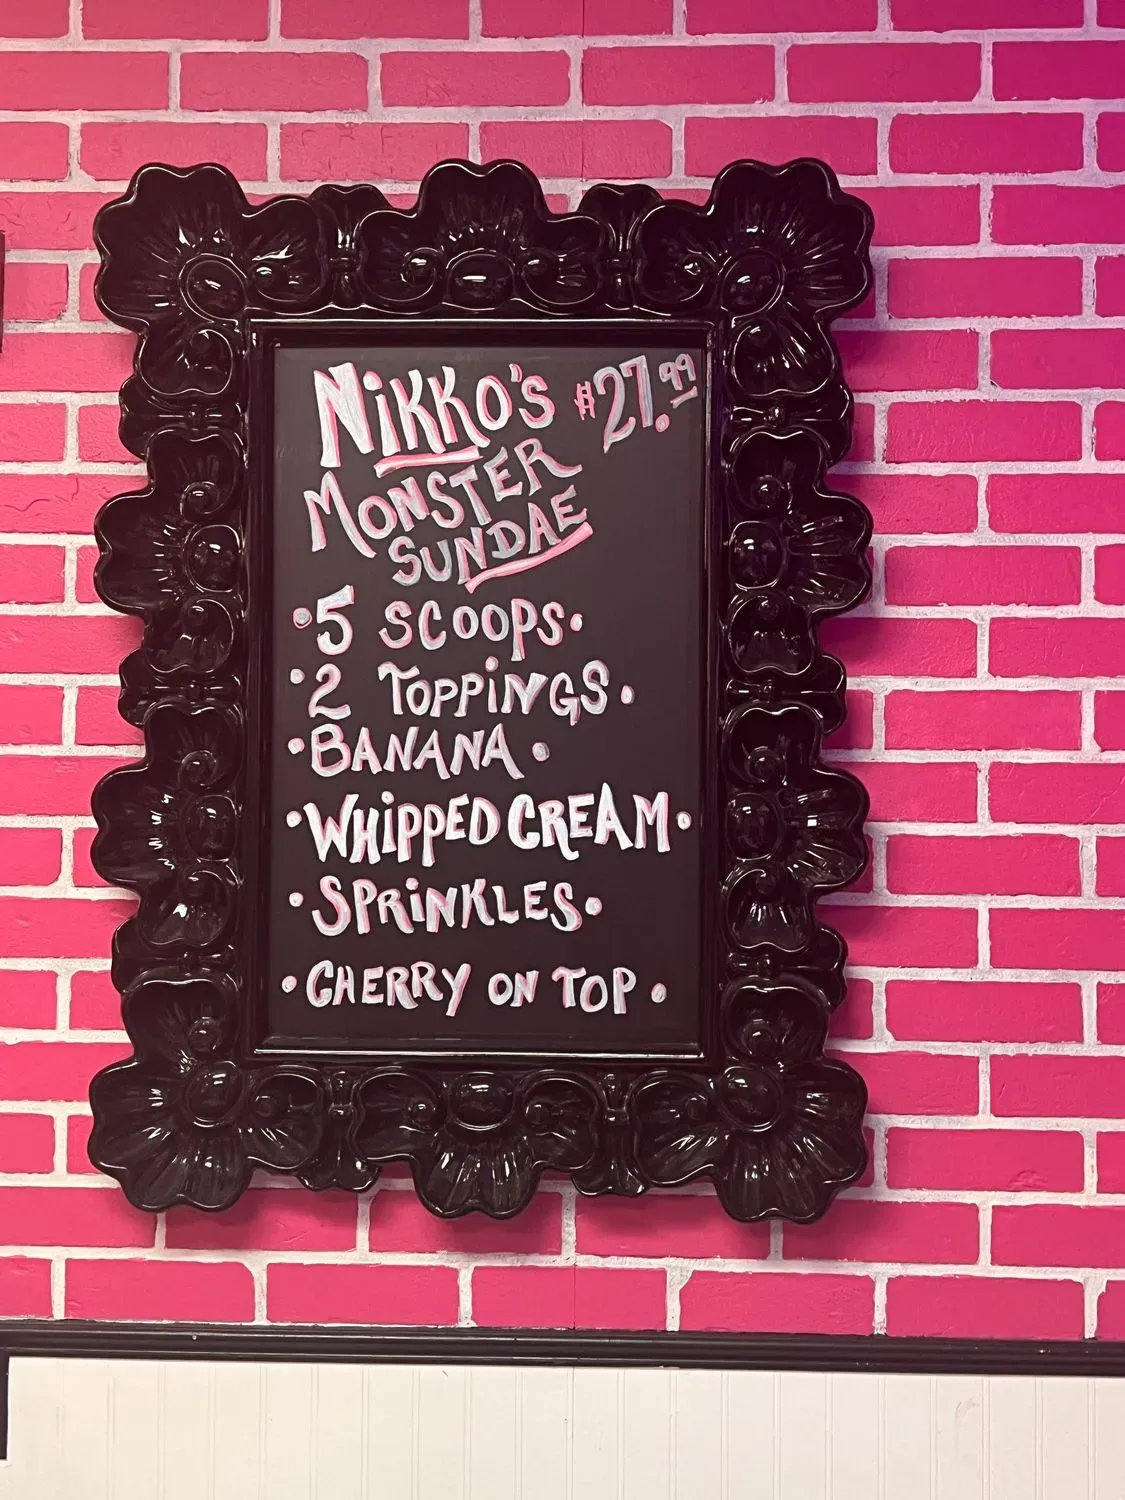 NiKKO'S $27.99
MONSTER
SUNDAE
•5 SCOOPS•
•2 TOPPiNGS•
•BANANA•
•WHiPPED CREAM•
•SPRiNKLES•
•CHERRY ON TOP•